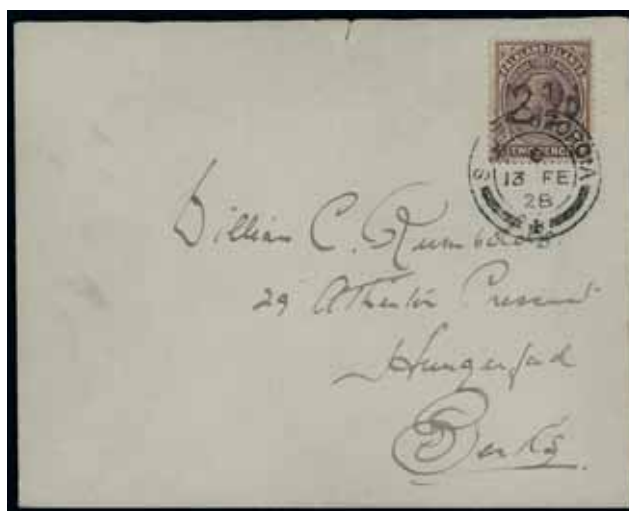 FALKLAND ISLANDS
2½D
TWO PENCE
SOUTH GEORGIA
13 FE
28
William C. Rumbold
29 Atherton Crescent
Hungerford
Berks.